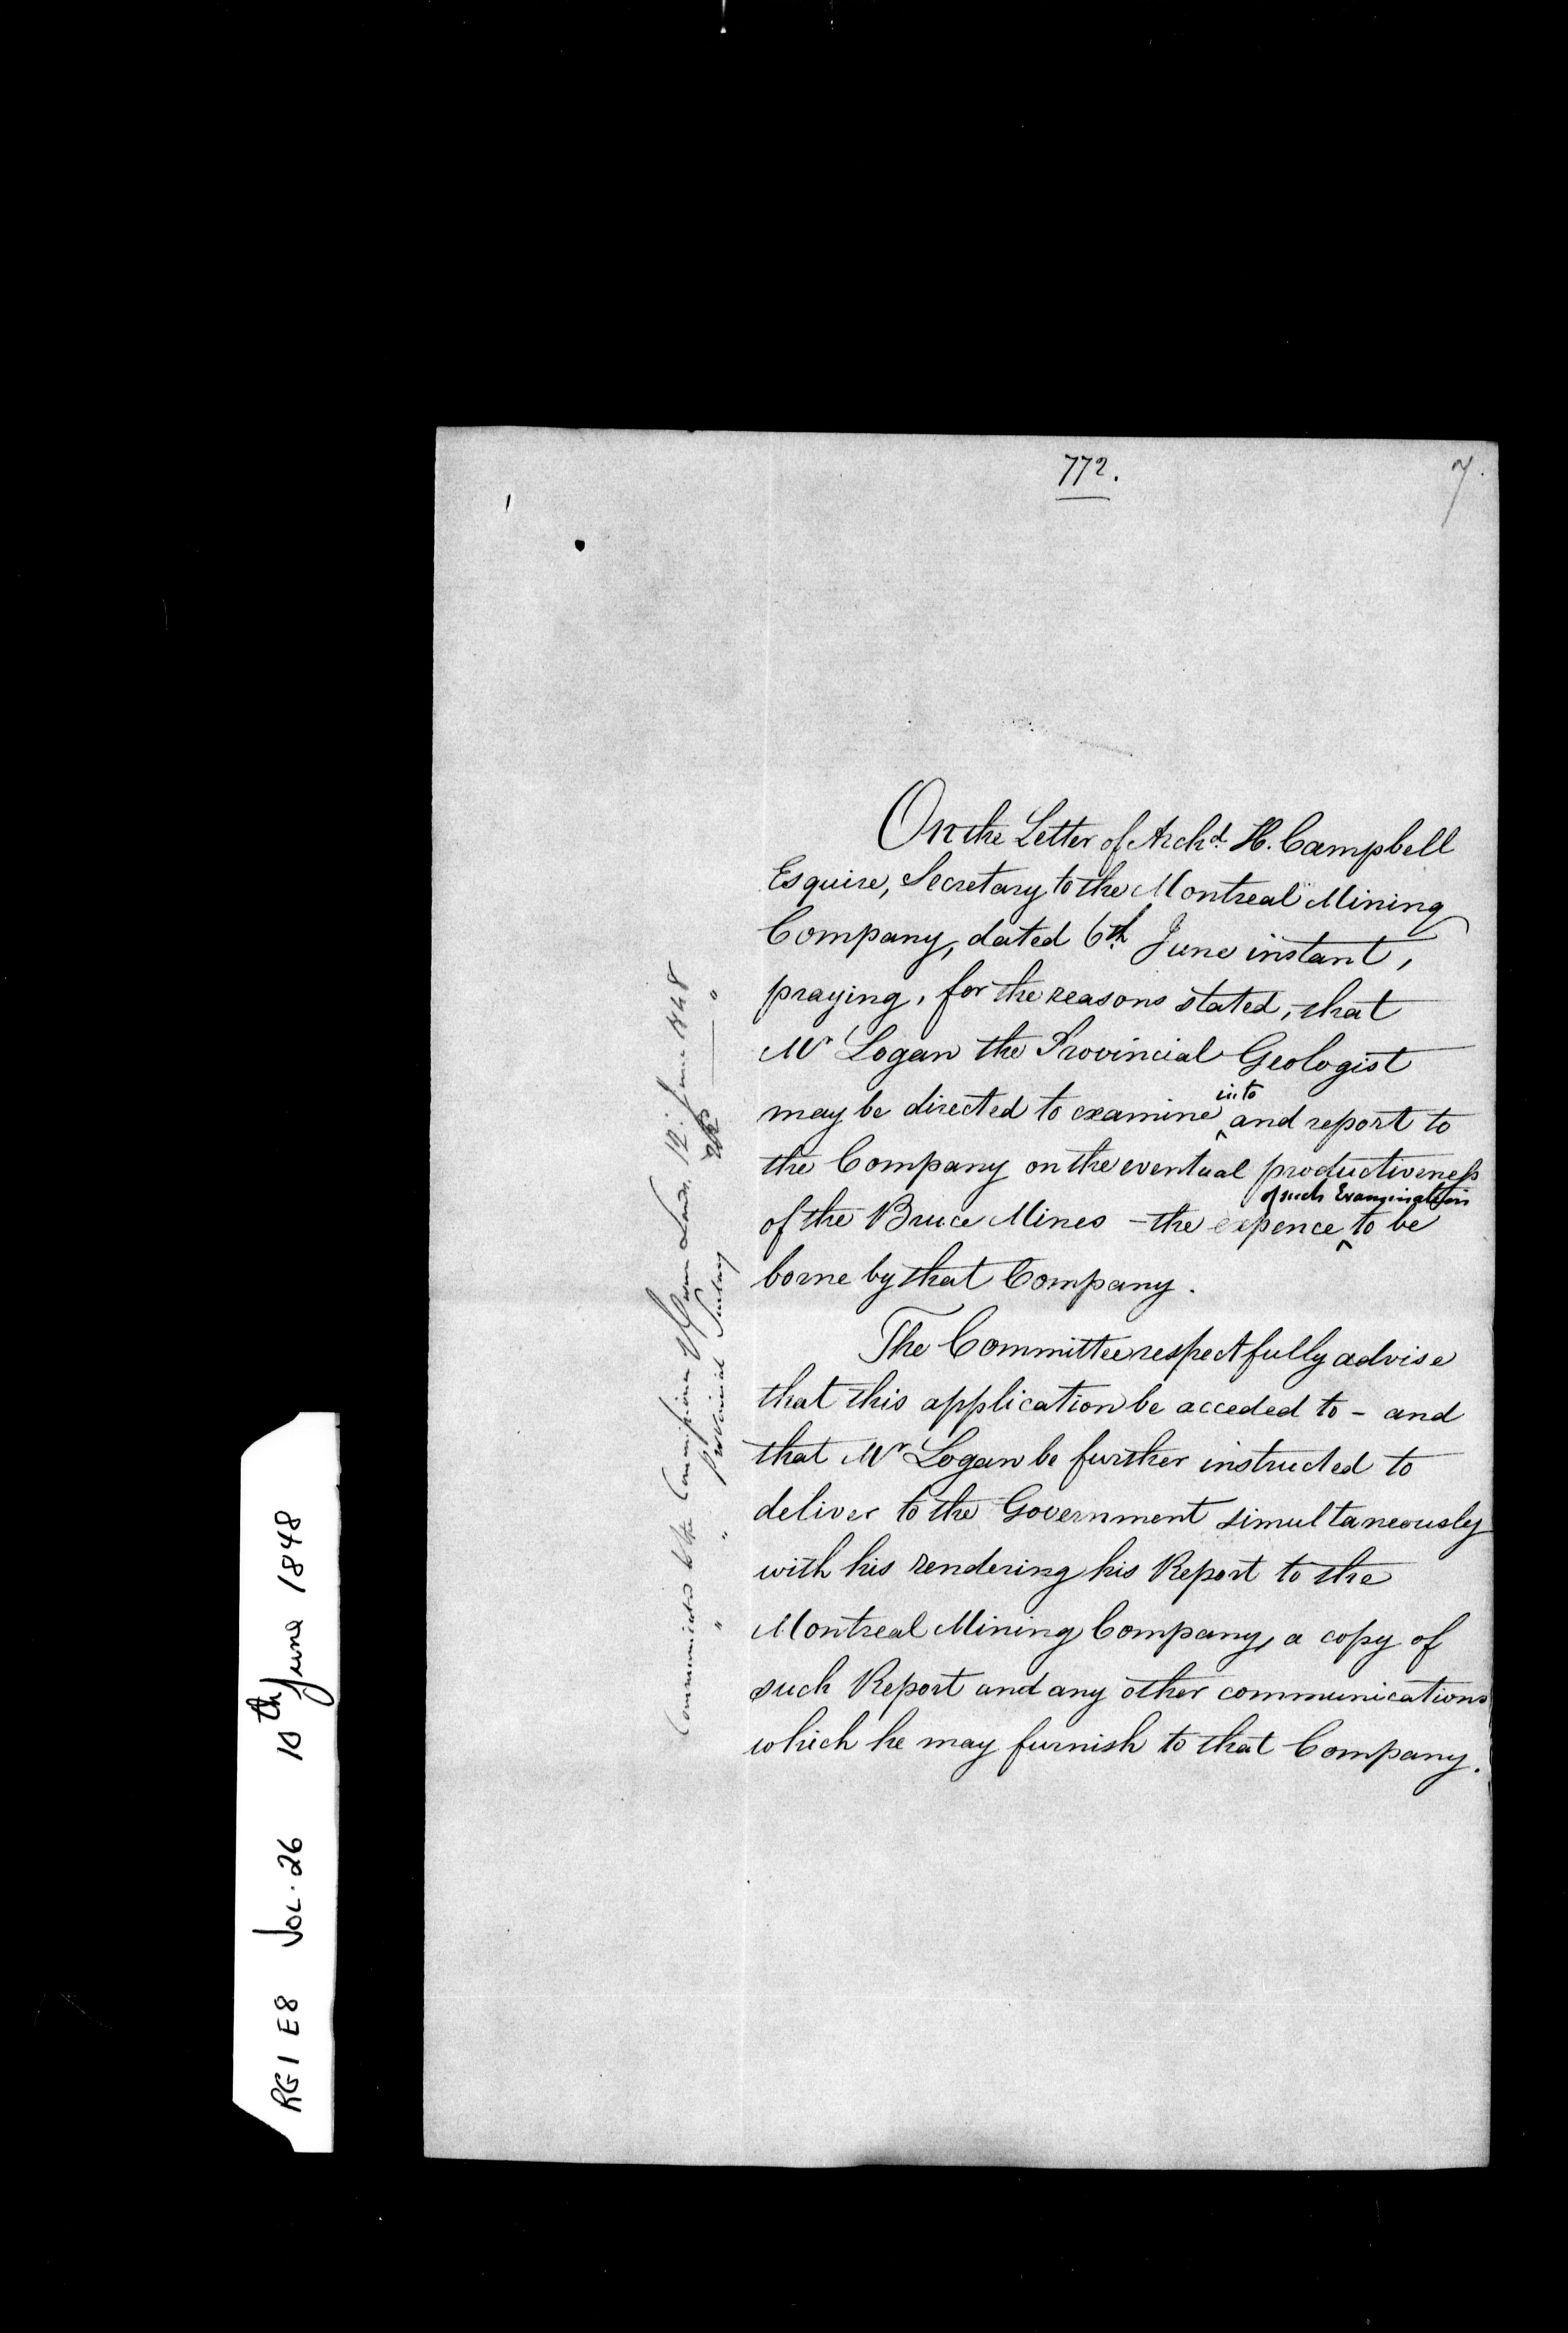 772.
7.
On the Letter of Archd. H. Campbell
Esquire, Secretary to the Montreal Mining
Company, dated 6th June instant,
praying, for the reasons stated, that
Mr Logan the Provincial Geologist
may be directed to examine into and report to
the Company on the eventual productiveness
of the Bruce Mines – the expence of such Examination to be
borne by that Company.
The Committee respectfully advise
that this application be acceded to – and
that Mr Logan be further instructed to
deliver to the Government simultaneously
with his rendering his Report to the
Montreal Mining Company, a copy of
such Report and any other communications
which he may furnish to that Company.
Communicated to the Commissioner of Crown Lands, 12. June 1848
" " Provincial Secretary "
RG1 E8 Vol. 26 10th June 1848